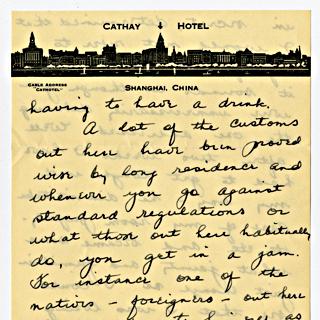 CATHAY HOTEL
CABLE ADDRESS
"CATHOTEL"
SHANGHAI, CHINA
having to have a drink.
A lot of the customs
out here have been proved
wise by long residence and
whenever you go against
standard regulations or
what those out here habitually
do, you get in a jam.
For instance one of the
natives - foreigners - out here